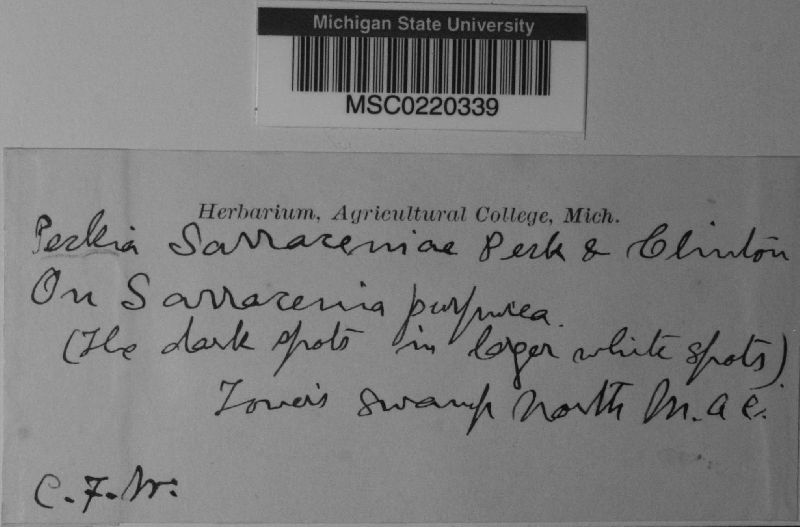 Michigan State University
MSC0220339
Herbarium, Agricultural College, Mich.
Peckia Sarraceniae Peck & Clinton
On Sarracenia purpurea.
(The dark spots in larger white spots)
swamp North M. A C.
C. F. W.